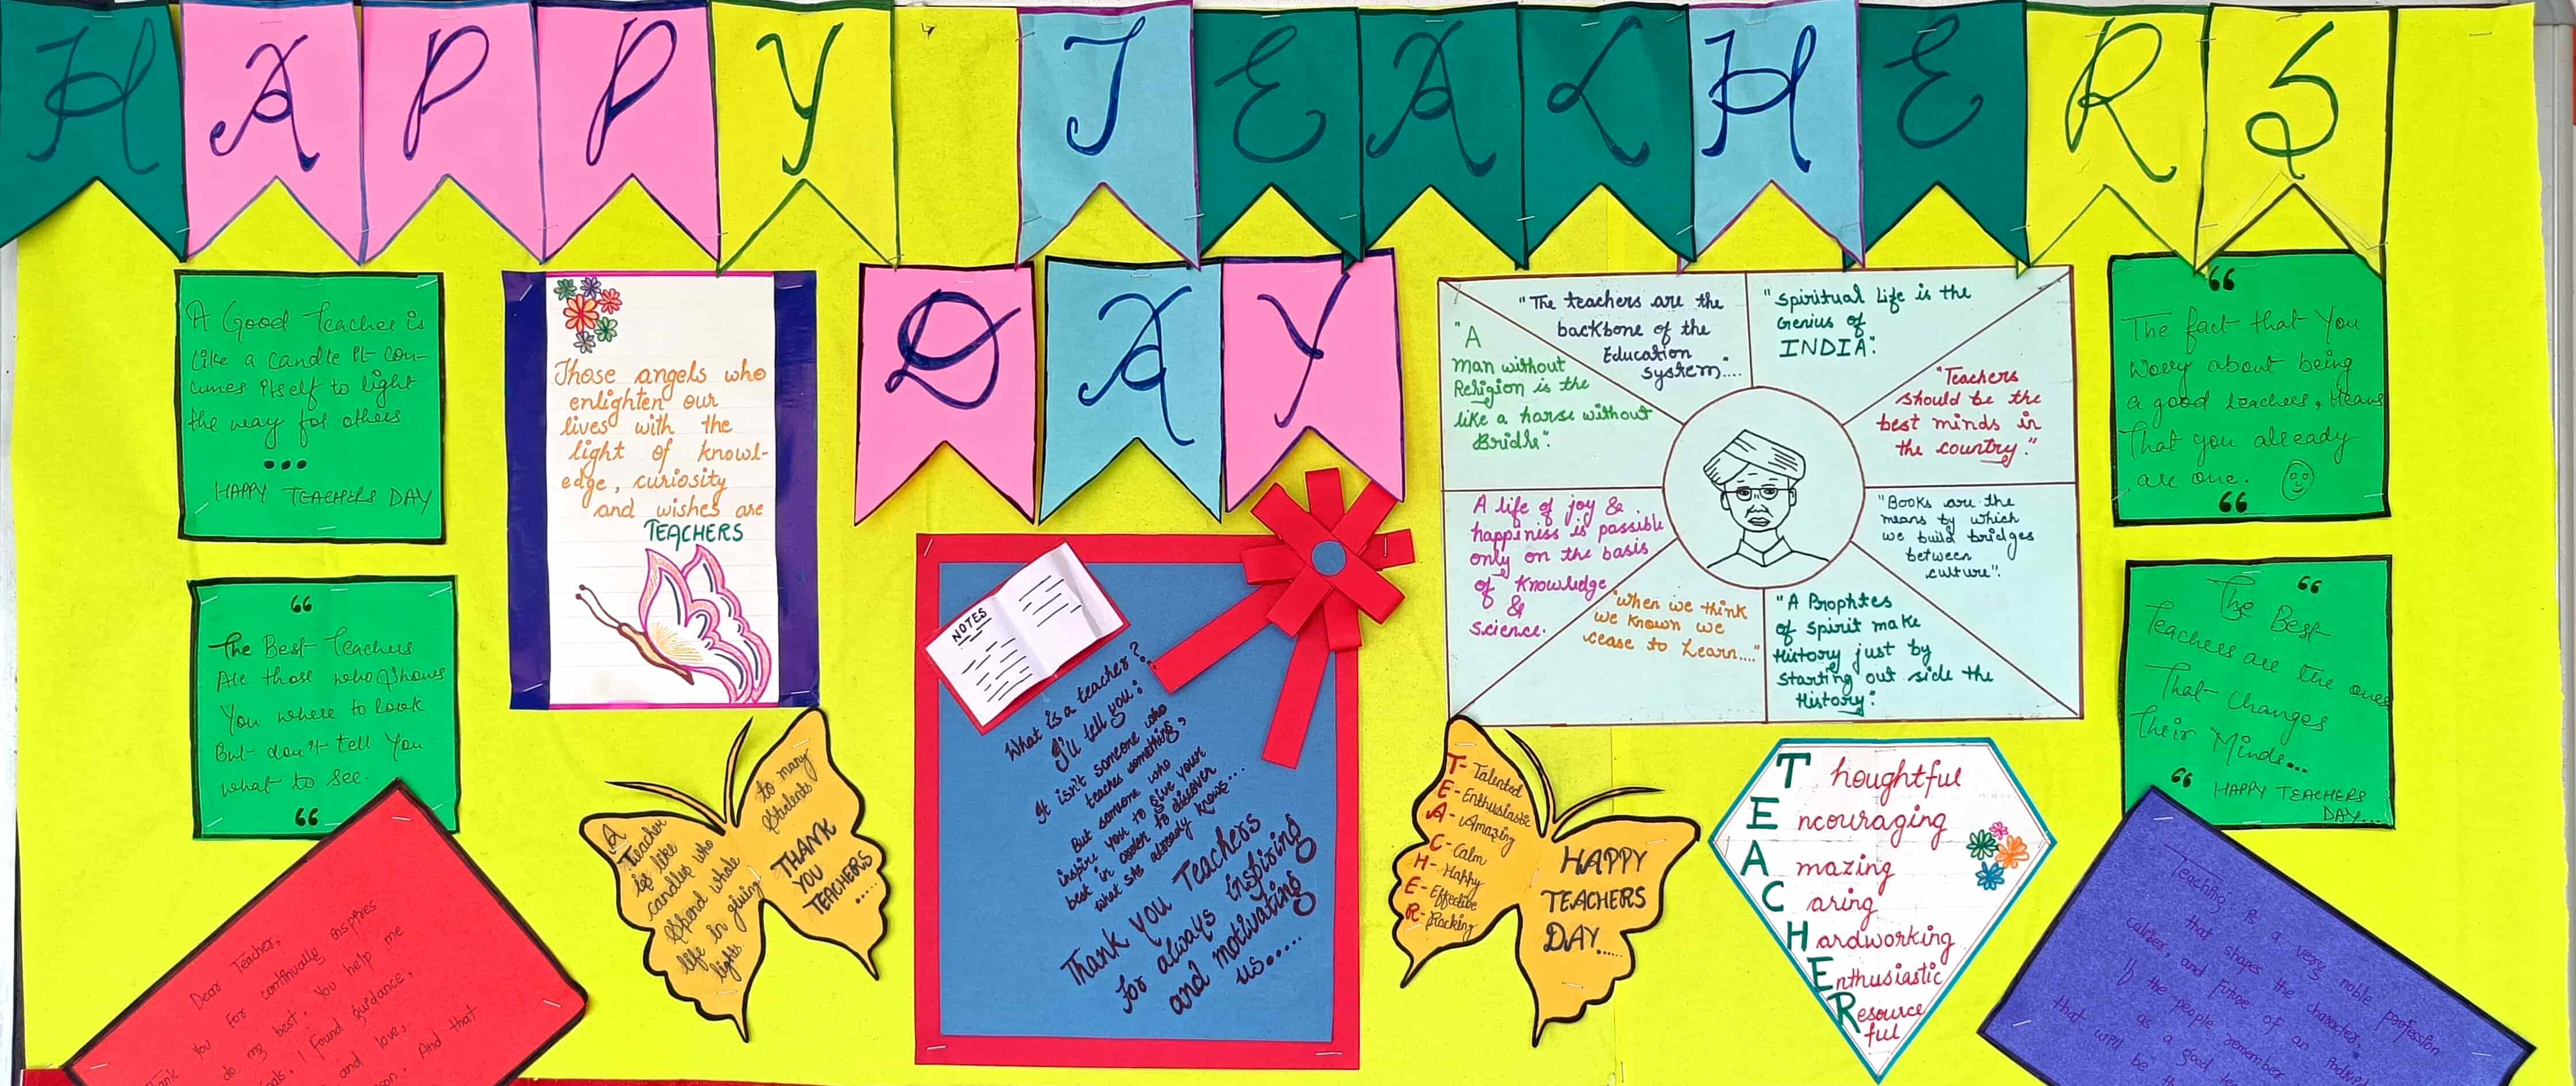 HAPPY TEACHERS
DAY
A Good Teacher is
like a candle it con-
cumes itself to light
the way for others
...
HAPPY TEACHERS DAY
Those angels who
enlighten our
lives with the
light of knowl-
edge, curiosity
and wishes are
TEACHERS
"A
man without
Religion is the
like a horse without
Bridle".
"The teachers are the
backbone of the
Education
system....
"Spiritual Life is the
Genius of
INDIA".
"Teachers
should be the
best minds in
the country."
A life of joy &
happiness is possible
only on the basis
of knowledge
&
science.
"Books are the
means by which
we build bridges
between
culture".
"when we think
we known we
cease to Learn...."
"A Prophtes
of spirit make
History just by
starting out side the
History".
“
The fact that You
Worry about being
a good teacher, Means
That you already
are one.
“
“
The Best Teachers
Are those who Shows
You where to look
But don't tell You
what to see.
“
“
The Best
Teachers are the ones
That Changes
Their Minds...
“ HAPPY TEACHERS
DAY...
NOTES
What is a teacher?
I'll tell you:
It isn't someone who
teaches something,
But someone who
inspire you to give your
best in order to discover
what she already knows...
Thank you Teachers
for always inspiring
and motivating
us.....
A
Teacher
is like
candles who
Spend whole
life in giving
light.
to many
Students
THANK
YOU
TEACHERS
.....
T- Talented
E- Enthusiastic
A- Amazing
C- Calm
H- Happy
E- Effective
R- Racking
HAPPY
TEACHERS
DAY.....
Thoughtful
Encouraging
Amazing
Caring
Hardworking
Enthusiastic
Resource
ful
Dear Teacher,
for continually inspires
You
do my best. You help me
I found guidance,
and love,
And that
Teaching is a very noble profession
that shapes the character,
caliber, and future of an
If the people remember
as a good
that will be